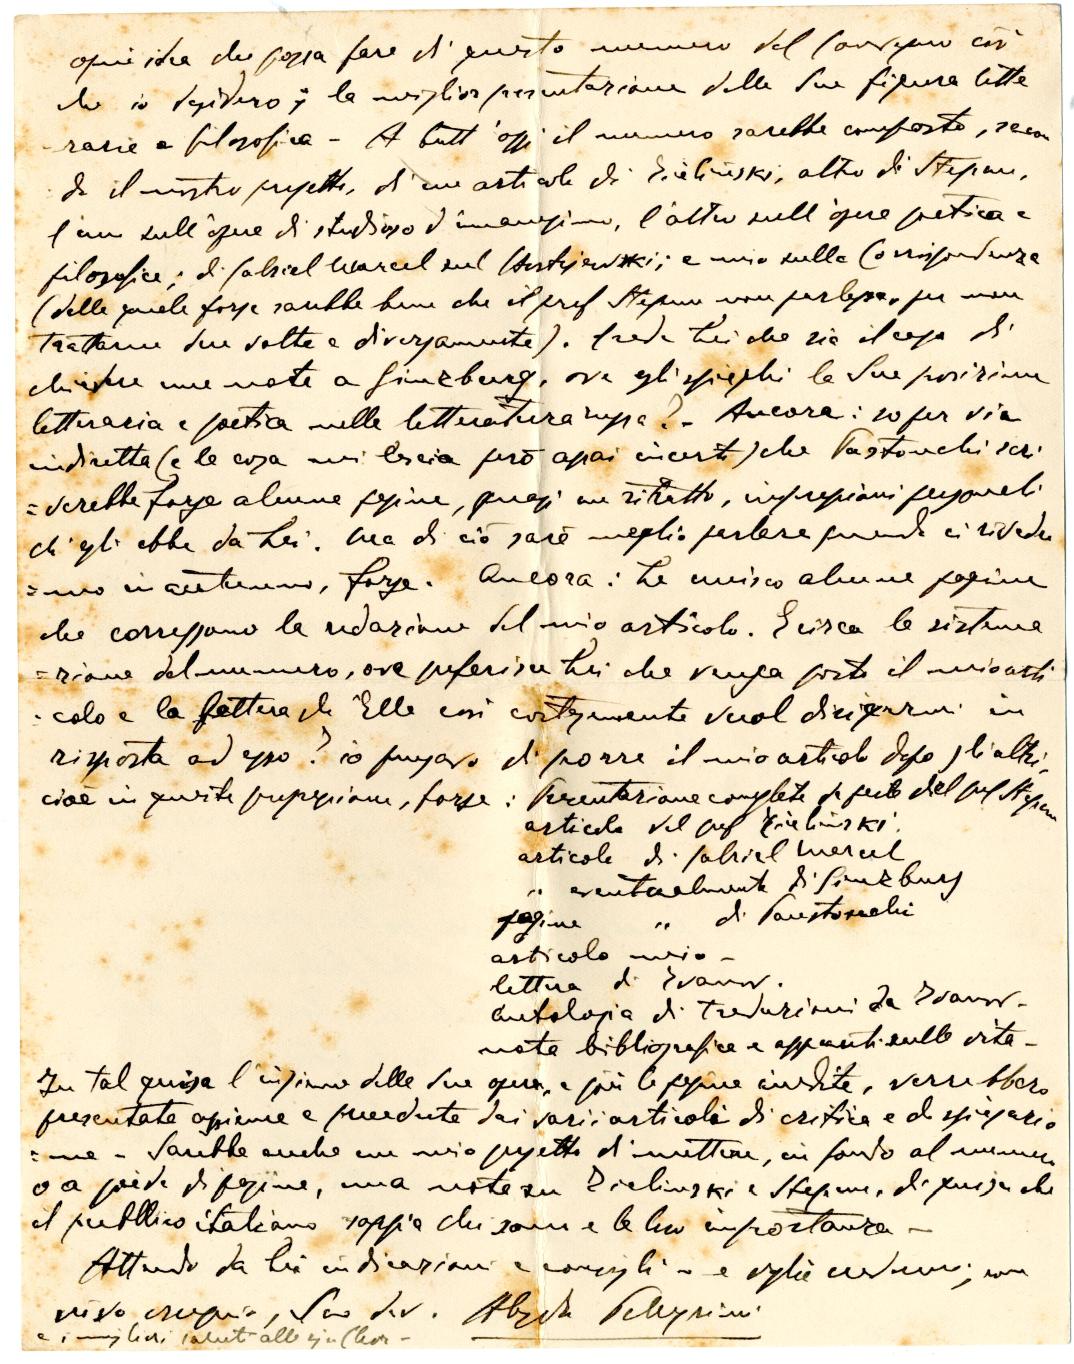 ogni idea che possa fare di questo numero del Convegno ciò
che io desidero; la miglior presentazione della Sua figura lette
raria e filosofica - A tutt'oggi il numero sarebbe composto, secon
do il nostro progetto, di un articolo di Zielinski, altro di Stepun,
l'un sull'opera di studioso d'umanesimo, l'altro sull'opera poetica e
filosofica; di Gabriel Marcel sul Dostojewski; e mio sulla Corrispondenza
(della quale forse sarebbe bene che il prof Stepun non parlasse, per non
trattarne due volte e diversamente). Crede Lei che sia il caso di
chiedere una nota a Ginzburg, ove egli spieghi la Sua posizione
letteraria e poetica nella letteratura russa? - Ancora: so per via
indiretta (e la cosa mi lascia però assai incerto) che Pastonchi scri
=verebbe forse alcune pagine, quasi un ritratto, impressioni personali
ch'egli ebbe da Lei. Ma di ciò sarà meglio parlare quando ci rivedre
=mo in autunno, forse. Ancora: Le unisco alcune pagine
che correggono la redazione del mio articolo. E circa la sistema
=zione del numero, ove preferisce Lei che venga posto il mio arti
-colo e la lettera ch'Ella così cortesemente vuol dirigermi in
risposta ad esso? io pensavo di porre il mio articolo dopo gli altri,
cioè in questa progressione, forse: Presentazione completa da parte del prof Stepun
articolo del prof Zielinski.
articolo di Gabriel Marcel
" eventualmente di Ginzburg
pagine " di Pastonchi
articolo mio -
lettera di Ivanov.
Antologia di traduzioni da Ivanov -
nota bibliografica e appunti sulla vita -
In tal guisa l'insieme della Sua opera, e poi le pagine inedite, verrebbero
presentate assieme e precedute dai varii articoli di critica e di spiegazio
=ne - Sarebbe anche un mio progetto di mettere, in fondo al numero
o a piede di pagina, una nota su Zielinski e Stepun, di guisa che
il pubblico italiano sappia chi sono e la loro importanza -
Attendo da Lei indicazioni e consigli - e voglia credermi, con
vivo ossequio, Suo dev. Alessandro Pellegrini
e i migliori saluti alla